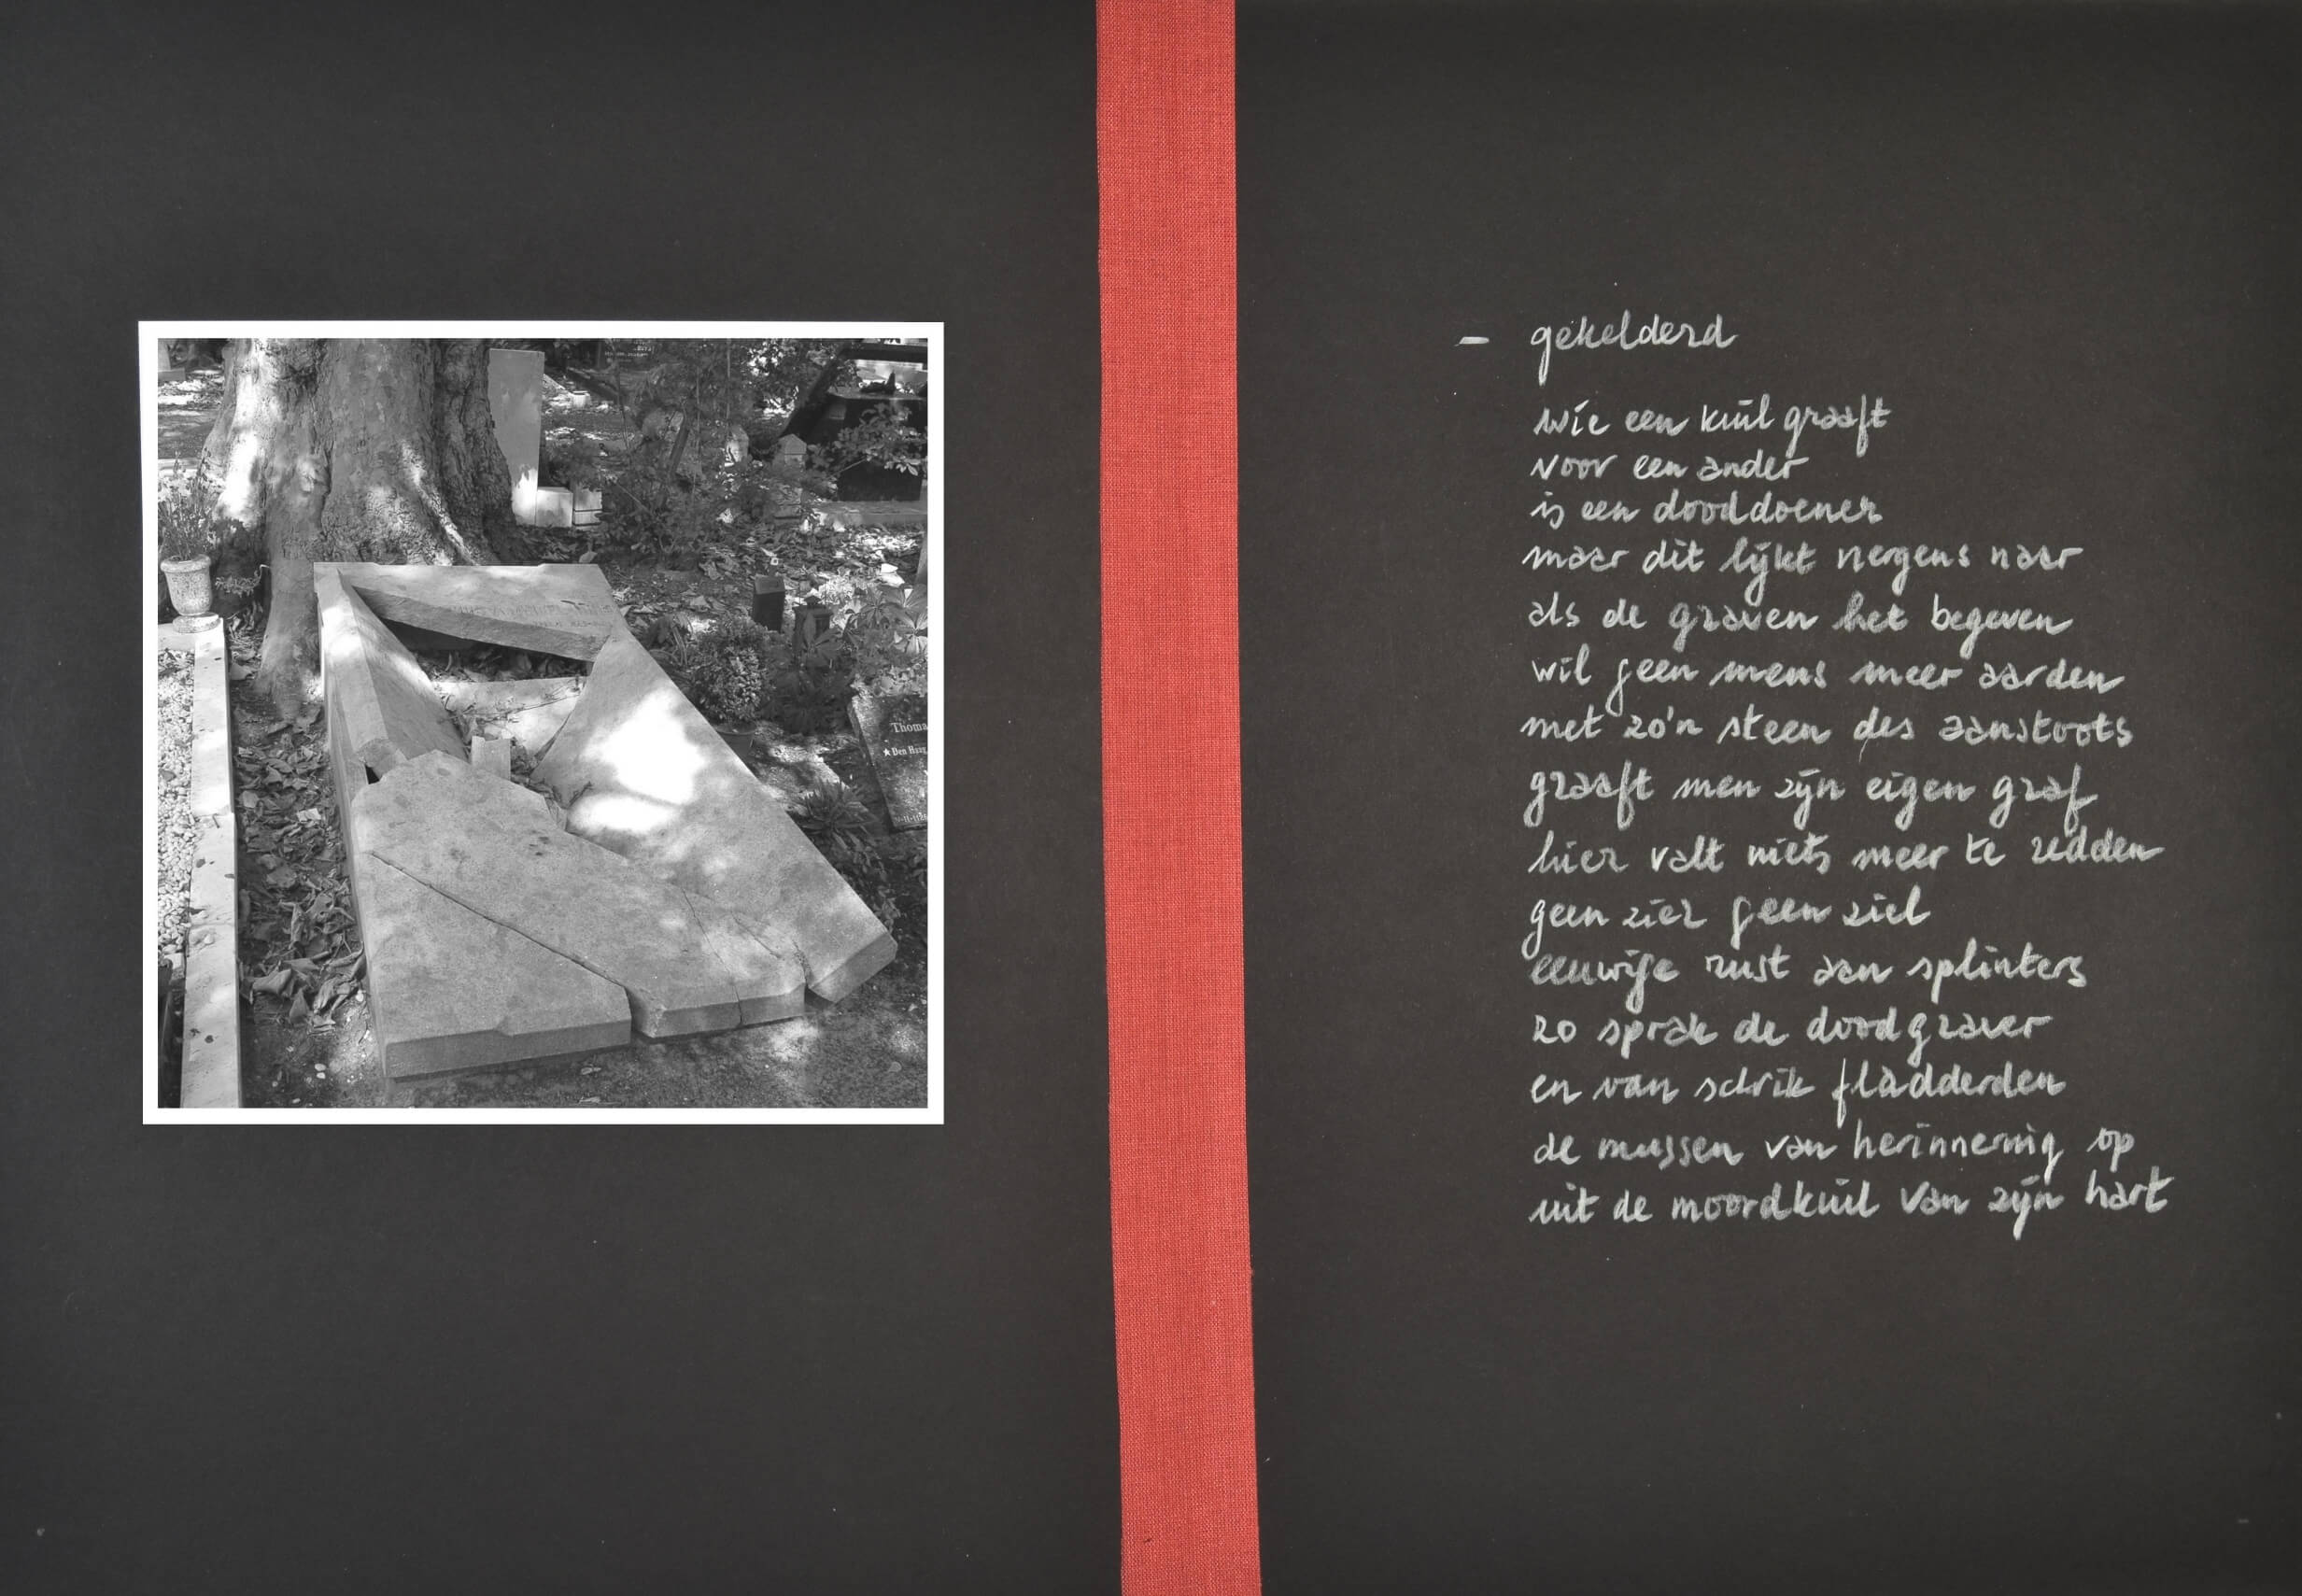 Thoma
★ Den Haag,
– gekelderd
wie een kuil graaft
voor een ander
is een dooddoener
maar dit lijkt nergens naar
als de graven het begeven
wil geen mens meer aarden
met zo'n steen des aanstoots
graaft men zijn eigen graf
hier valt niets meer te redden
geen zier geen ziel
eeuwige rust aan splinters
zo sprak de doodgraver
en van schrik fladderden
de mussen van herinnering op
uit de moordkuil van zijn hart